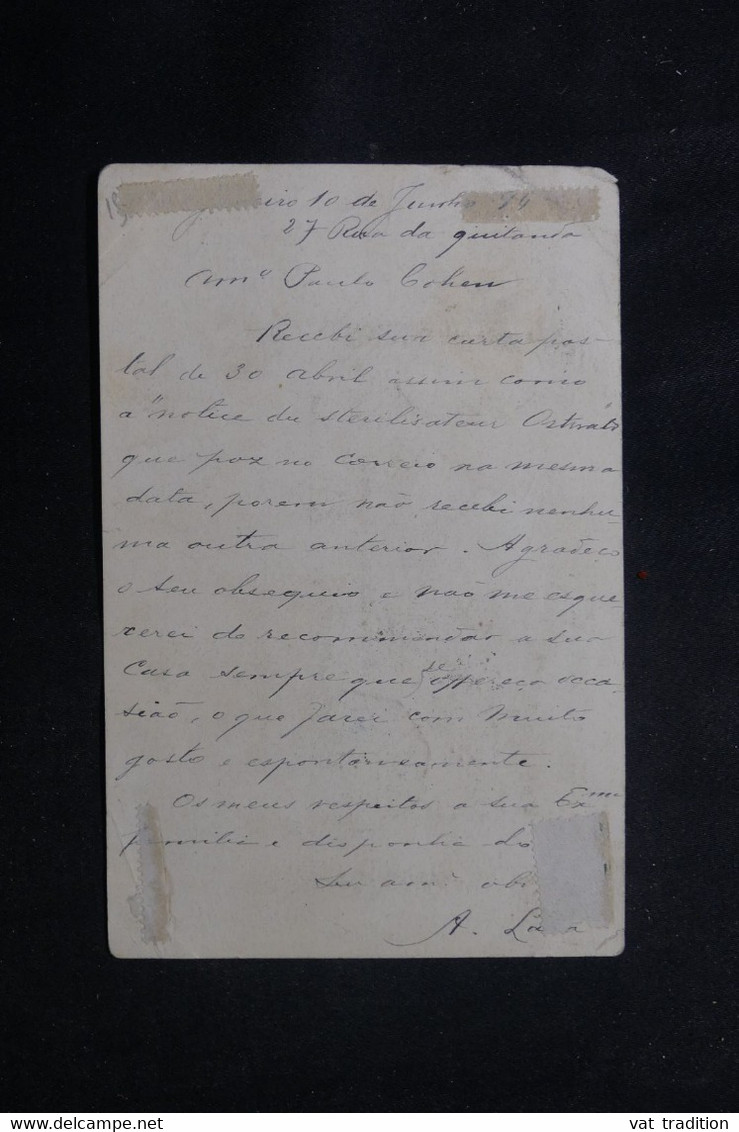 10 de Junho
27 Rua da quitanda
Paulo Cohen
Recebi sua carta pos-
tal de 30 abril assim como
a "notice du sterilisateur
que poz no Correio na mesma
data, porem não recebi nenhu-
ma outra anterior. Agradeço
o seu obsequio e não me esque
cerei de recommendar a sua
Casa sempre que se offereça occa-
sião, o que farei com muito
gosto e espontaneamente.
Os meus respeitos a sua Exma
familia e disponha do
Seu amo
A.
www.delcampe.net
vat tradition